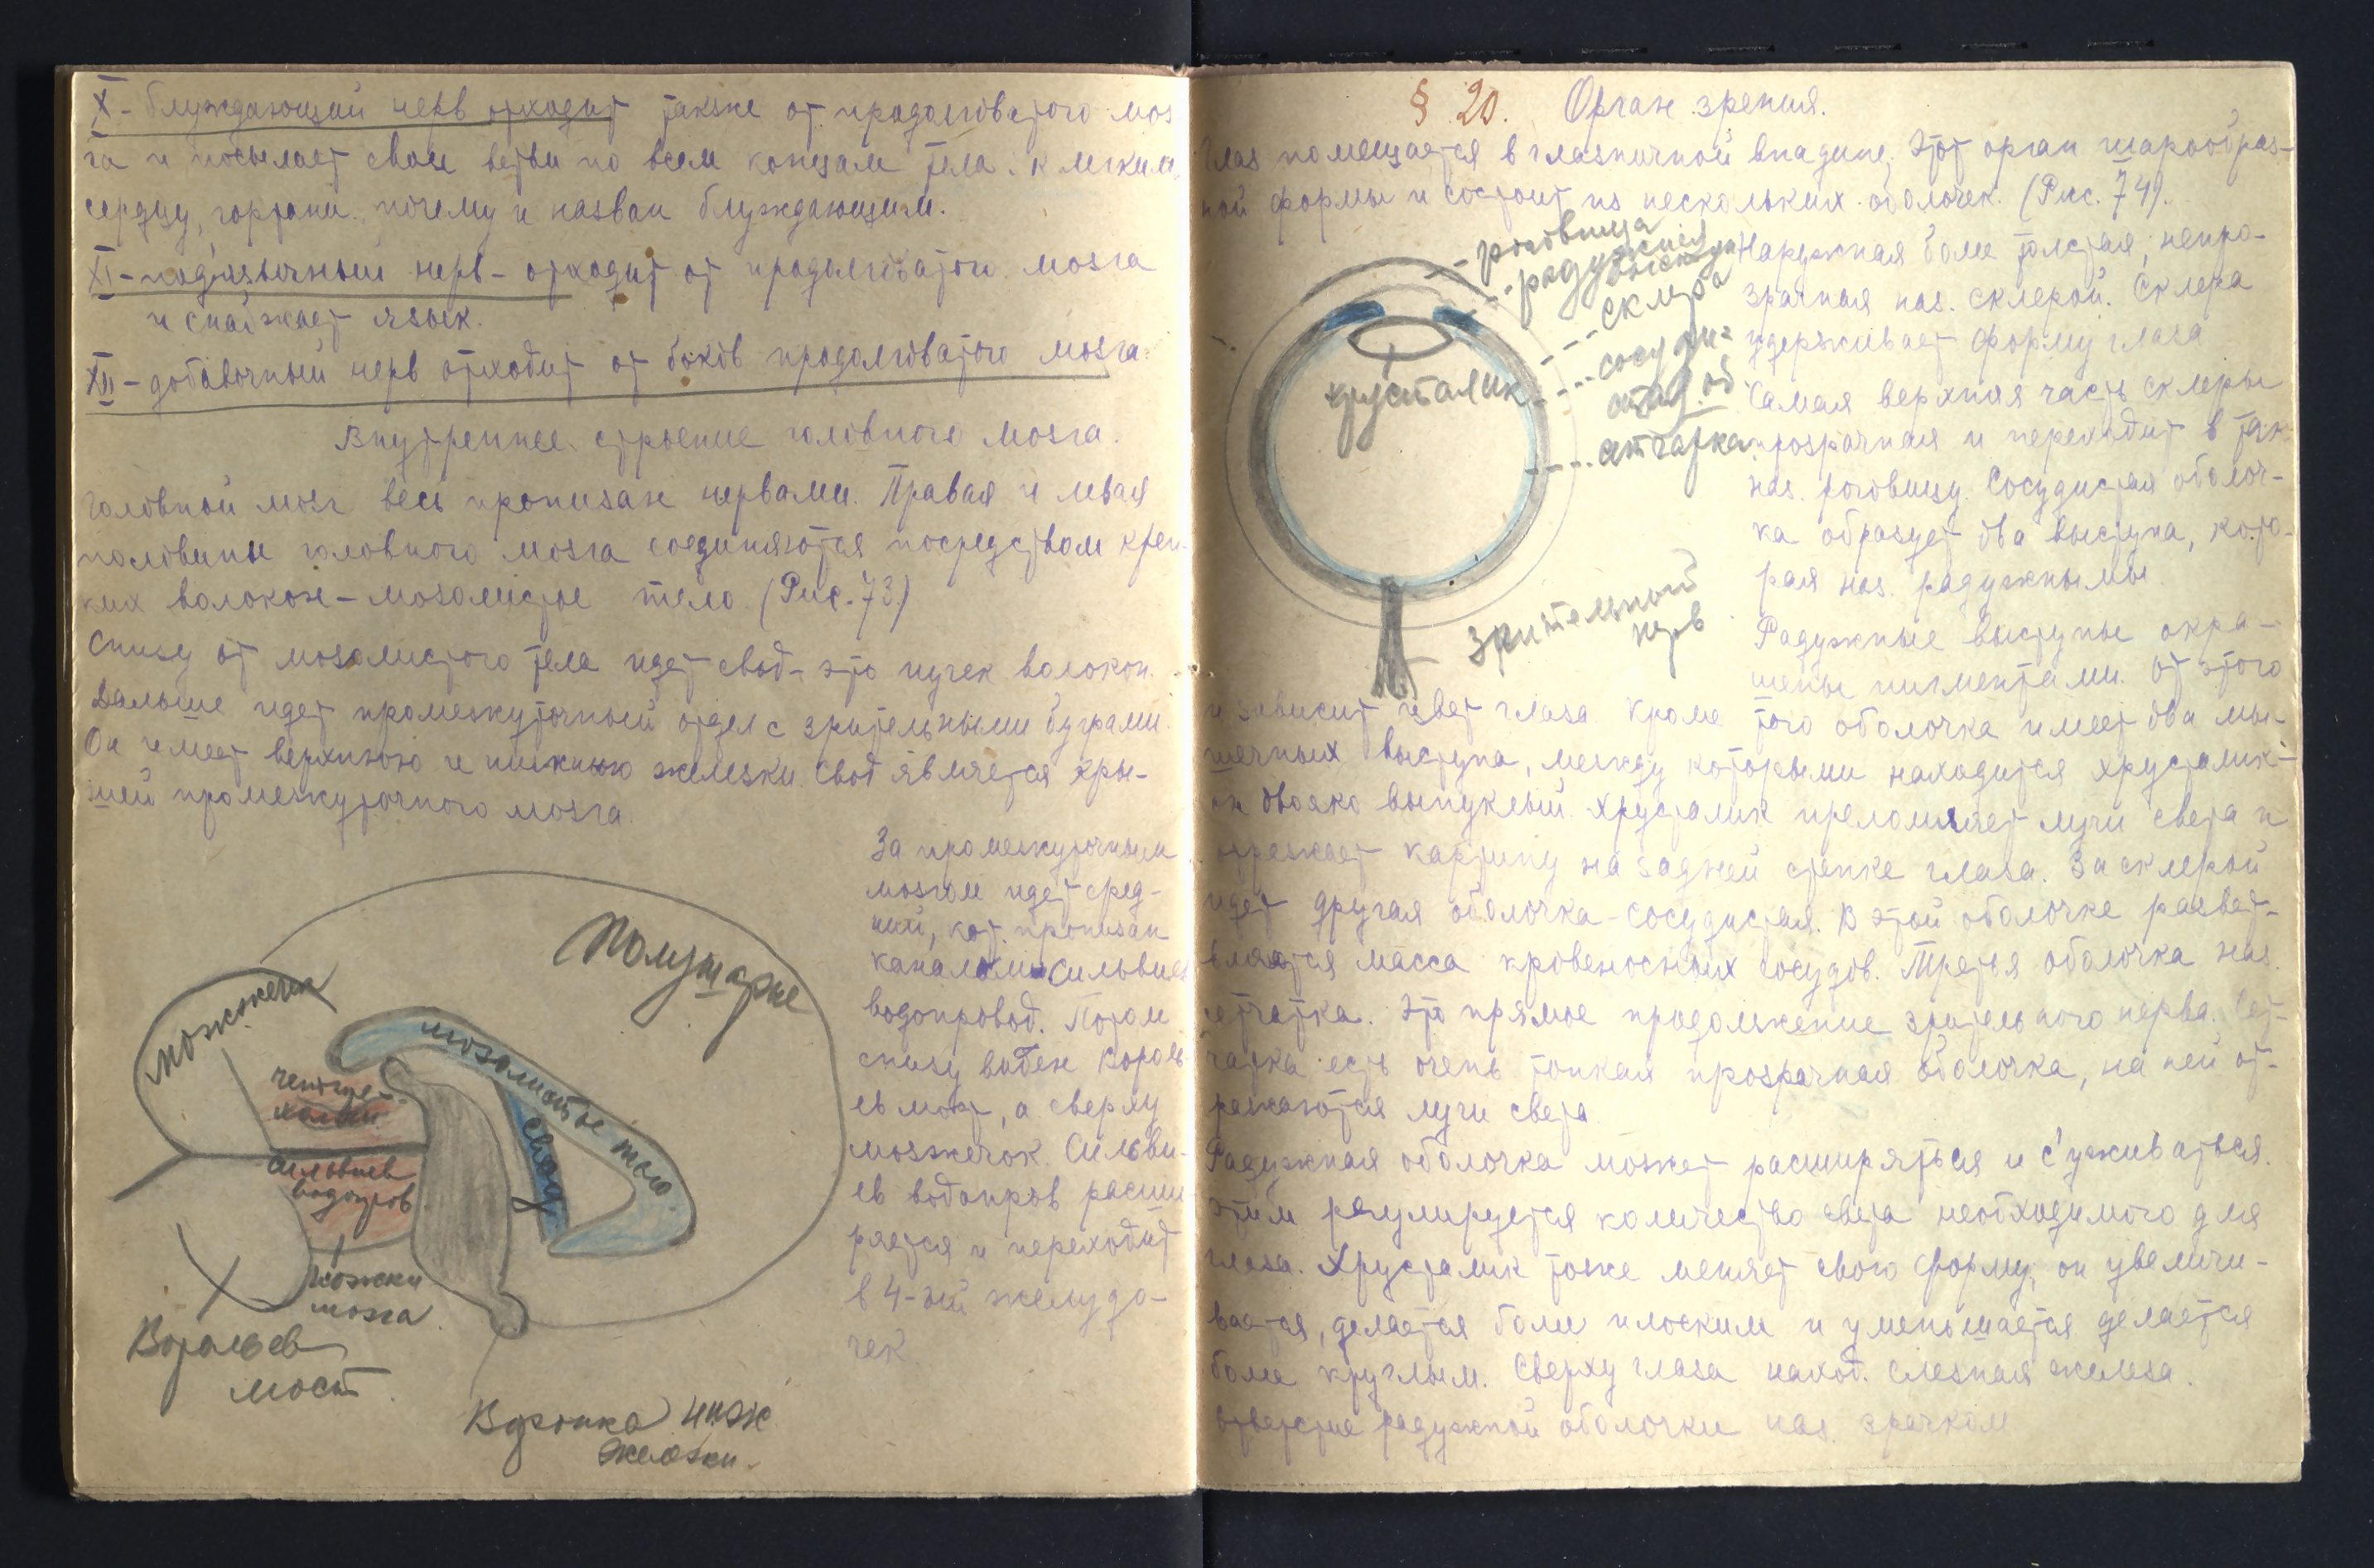 X - блуждающий нерв отходит также от продолговатого моз
га и посылает свои ветви по всем концам тела: к легким,
сердцу, гортани, почему и назван блуждающим.
XI - подъязычный нерв - отходит от продолговатого мозга
и снабжает язык.
XII - добавочный нерв отходит от боков продолговатого мозга.
Внутреннее строение головного мозга.
Головной мозг весь пронизан нервами. Правая и левая
половины головного мозга соединяются посредством креп-
ких волокон - мозолистое тело (Рис. 73)
Снизу от мозолистого тела идет свод - это пучек волокон.
Дальше идет промежуточный отдел с зрительными буграми.
Он имеет верхнюю и нижнюю железки. Свод является кры-
шей промежуточного мозга.
За промежуточным
мозгом идет сред-
ний, кот. пронизан
каналом Сильвиев
водопровод. Потом
снизу виден Вороль-
ев мост, а сверху
мозжечок. Сильви-
ев водопров расши
ряется и переходит
в 4-ый желудо-
чек.
Полушарие
мозжечек
мозолистое тело
четыре-
холмие
свод
сильвиев
водопров
ножки
мозга
Воральев
мост.
Воронка ниж
железки.
§ 20. Орган зрения.
Глаз помещается в глазничной впадине. Этот орган шарообраз-
ной формы и состоит из нескольких оболочек. (Рис. 74).
роговица
радужный
выступ
склера
сосуди-
стая об
сетчатка
хрусталик
зрительный
нерв
Наружная более толстая, непро-
зрачная наз. склерой. Склера
удерживает форму глаза
Самая верхняя часть склеры
прозрачная и переходит в так
наз. роговицу. Сосудистая оболоч-
ка образует два выступа, кото-
рая наз. радужными.
Радужные выступы окра-
шены пигментами. От этого
и зависит цвет глаза. Кроме того оболочка имеет два мы-
шечных выступа, между которыми находится хрусталик -
он двояко выпуклый. Хрусталик преломляет лучи света и
отражает картину на задней стенке глаза. За склерой
идет другая оболочка - сосудистая. В этой оболочке развет-
вляется масса кровеносных сосудов. Третья оболочка наз.
сетчатка. Это прямое продолжение зрительного нерва. Сет-
чатка есть очень тонкая прозрачная оболочка, на ней от-
ражаются лучи света.
Радужная оболочка может расширяться и с'уживаться.
Этим регулируется количество света необходимого для
глаза. Хрусталик тоже меняет свою форму, он увеличи-
вается, делается более плоским и уменьшается делается
более круглым. Сверху глаза наход. слезная железа.
Отверстие радужной оболочки наз. зрачком